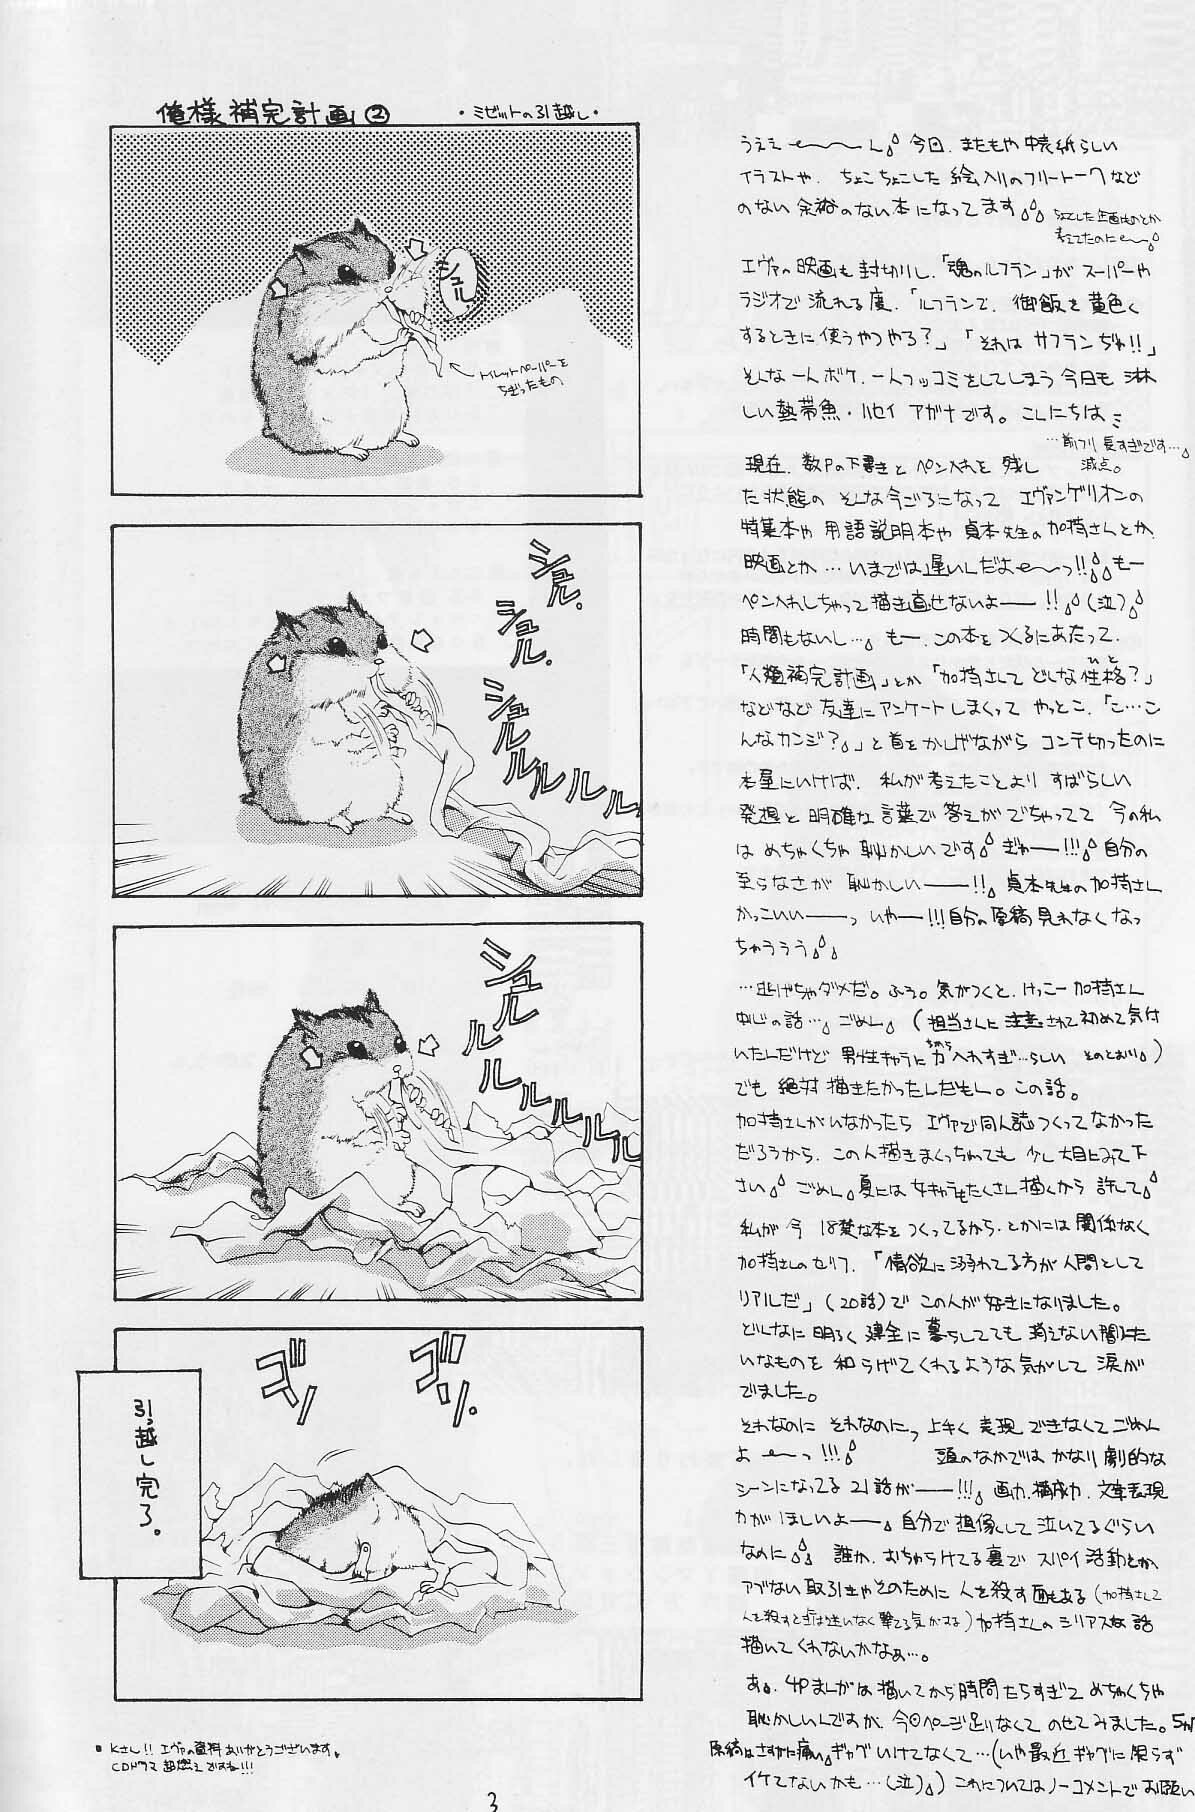 俺様補完計画②
・ミゼットの引越し・
シュル。
トイレットペーパーを
ちぎったもの
シュル。
シュル。
シュルルルルル
シュルルルルルル
ゴソ
ゴソ。
引っ越し完了。
Kさん!! エヴァの資料ありがとうございます。
CDドラマ 超燃えですね!!!
うええ〜〜ん 今回、またもや 中表紙らしい
イラストや、ちょこちょこした 絵入りのフリートークなど
のない 余裕のない本になってます
ちょっとした企画ものとか
考えてたのに〜
エヴァの映画も 封切りし、「魂のルフラン」が スーパーや
ラジオで 流れる度、「ルフランて、御飯を 黄色く
するときに 使うやつやろ?」「それは サフランぢゃ!!」
そんな 一人ボケ、一人ツッコミを してしまう 今日も 淋
しい 熱帯魚・ハセイ アガナです。こんにちは
…前フリ 長すぎです…。
減点。
現在、数Pの下書きと ペン入れを 残し
た状態の そんな今ごろになって エヴァンゲリオンの
特集本や 用語説明本や 貞本先生の 加持さんとか、
映画とか… いまでは 遅いんだよ〜〜っ!! もー
ペン入れしちゃって 描き直せないよーー!! (泣)
時間もないし… もー、この本を つくるにあたって、
「人類補完計画」とか「加持さんて どんな 性格?」
ひと
などなど 友達に アンケート しまくって やっとこ、「こ…こ
んなカンジ?」と 首を かしげながら コンテ切ったのに
本屋にいけば、私が 考えたことより すばらしい
発想と 明確な 言葉で 答えが でちゃってて 今の私
は めちゃくちゃ 恥かしいです ぎゃーー!!! 自分の
至らなさが 恥かしいーーー!! 貞本先生の 加持さん
かっこいいーーっ いやー!!! 自分の 原稿 見れなくなっ
ちゃううう
…逃げちゃダメだ。ふう。気がつくと、けっこー 加持さん
中心の話… ごめん (担当さんに 注意されて 初めて 気付
いたんだけど 男性キャラに 力 入れすぎ…らしい そのとおり)
ちから
でも 絶対 描きたかったんだもん。この話。
加持さんがいなかったら エヴァで 同人誌 つくってなかった
だろうから、この人 描きまくっちゃっても 少し 大目にみて 下
さい ごめん 夏には 女キャラもたくさん 描くから 許して
私が 今 18禁な本を つくってるから、とかには 関係なく
加持さんの セリフ、「情欲に 溺れてる方が 人間として
リアルだ」(20話)で この人が 好きになりました。
どんなに 明るく 健全に 暮らしてても 消えない 闇みた
いなものを 和らげて くれるような 気がして 涙が
でました。
それなのに それなのにっ 上手く 表現 できなくて ごめん
よ〜〜っ!!! 頭のなかでは かなり 劇的な
シーンになってる 21話がーー!!! 画力、構成力、文章表現
力が ほしいよー 自分で 想像して 泣いてるぐらい
なのに 誰か、おちゃらけてる裏で スパイ 活動とか
アブない 取引きや そのために 人を殺す 面もある (加持さんて
人を殺すとき は迷いなく 撃てる 気がする) 加持さんの シリアスな 話
描いて くれないかなぁ…。
あ、4Pまんがは 描いてから 時間 たちすぎて めちゃくちゃ
恥かしいんですが、今回 ページ 足りなくて のせてみました。
原稿は さすがに 痛い ギャグ いけてなくて…(いや 最近 ギャグに 限らず
イケてないかも…(泣)) これについては ノーコメントで お願い
3